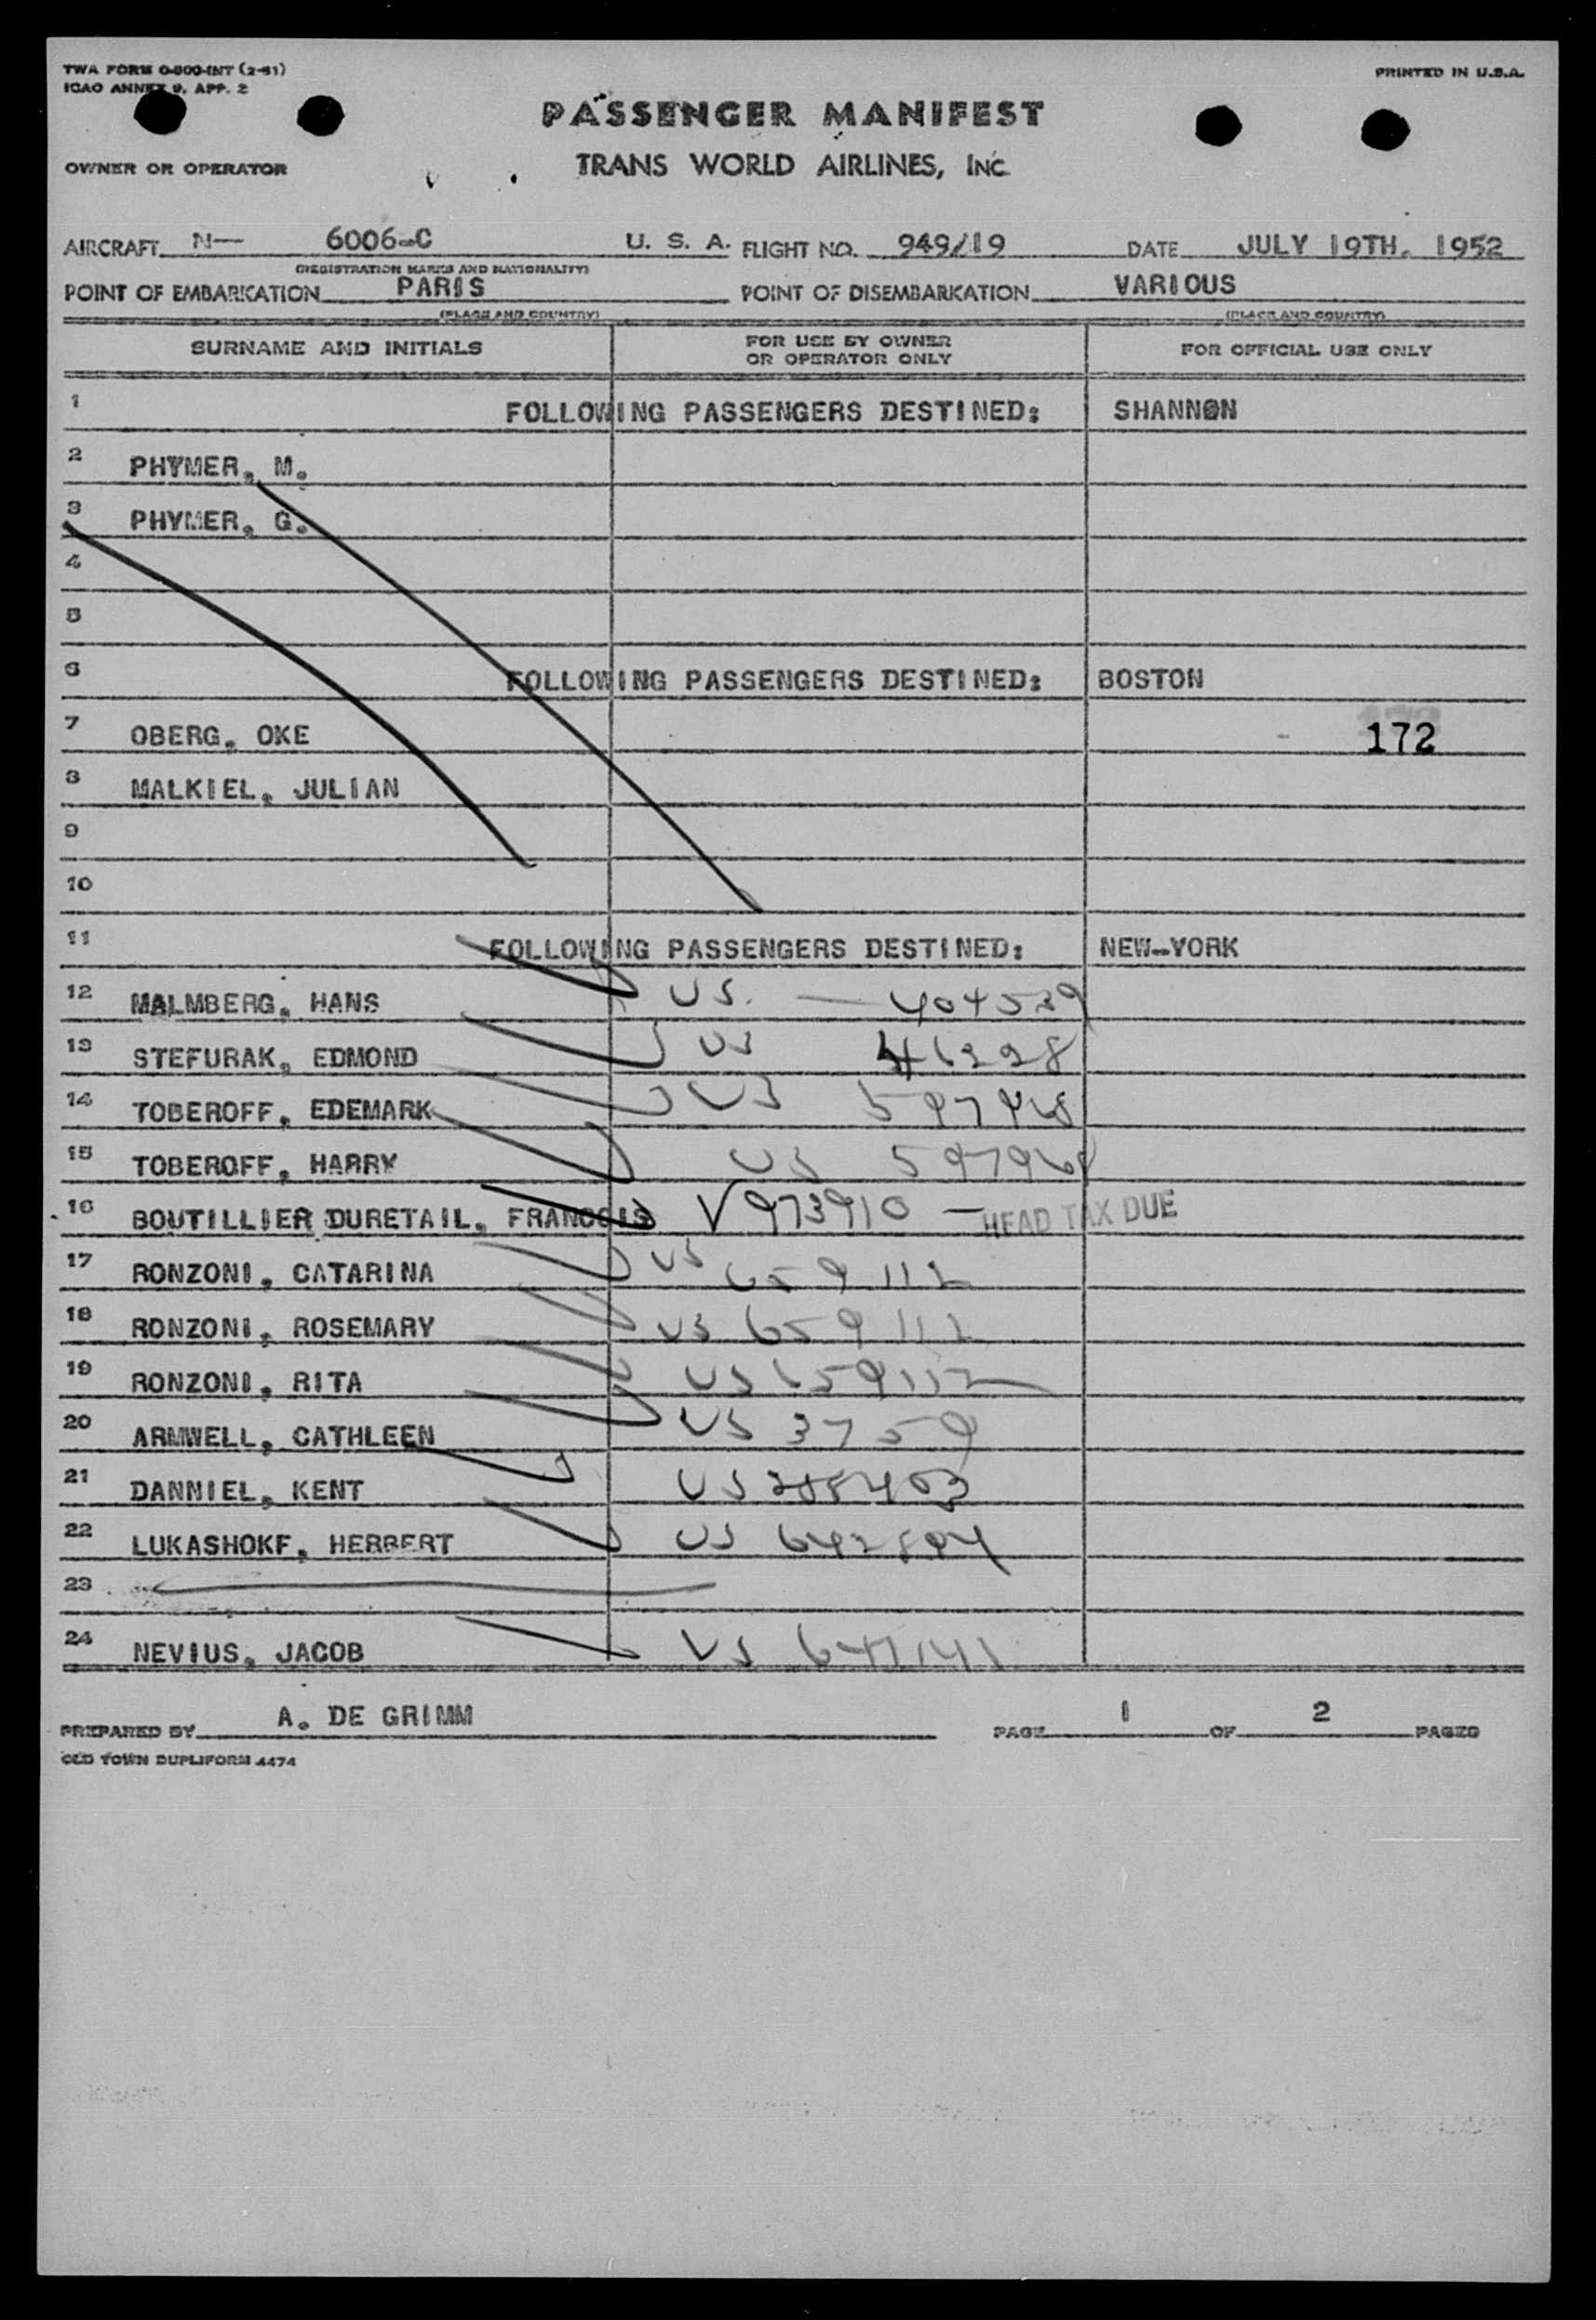 TWA FORM O-800-INT (2-51)
ICAO ANNEX 9, APP. 2
PRINTED IN U.S.A.
PASSENGER MANIFEST
OWNER OR OPERATOR TRANS WORLD AIRLINES, INC
AIRCRAFT N— 6006-C U. S. A. FLIGHT NO. 949/19 DATE JULY 19TH. 1952
(REGISTRATION MARKS AND NATIONALITY)
POINT OF EMBARKATION PARIS POINT OF DISEMBARKATION VARIOUS
(PLACE AND COUNTRY) (PLACE AND COUNTRY)
SURNAME AND INITIALS FOR USE BY OWNER OR OPERATOR ONLY FOR OFFICIAL USE ONLY
1 FOLLOWING PASSENGERS DESTINED: SHANNON
2 PHYMER, M.
3 PHYMER, G.
4
5
6 FOLLOWING PASSENGERS DESTINED: BOSTON
7 OBERG, OKE 172
8 MALKIEL, JULIAN
9
10
11 FOLLOWING PASSENGERS DESTINED: NEW-YORK
12 MALMBERG, HANS US. — 404539
13 STEFURAK, EDMOND US 46228
14 TOBEROFF, EDEMARK US
15 TOBEROFF, HARRY US
16 BOUTILLIER DURETAIL, FRANCOIS V973910 — HEAD TAX DUE
17 RONZONI, CATARINA US 659112
18 RONZONI, ROSEMARY US 659112
19 RONZONI, RITA US 659112
20 ARMWELL, CATHLEEN US 3759
21 DANNIEL, KENT US
22 LUKASHOKF, HERBERT US 642894
23
24 NEVIUS, JACOB US
PREPARED BY A. DE GRIMM PAGE 1 OF 2 PAGES
OLD TOWN DUPLIFORM 4474